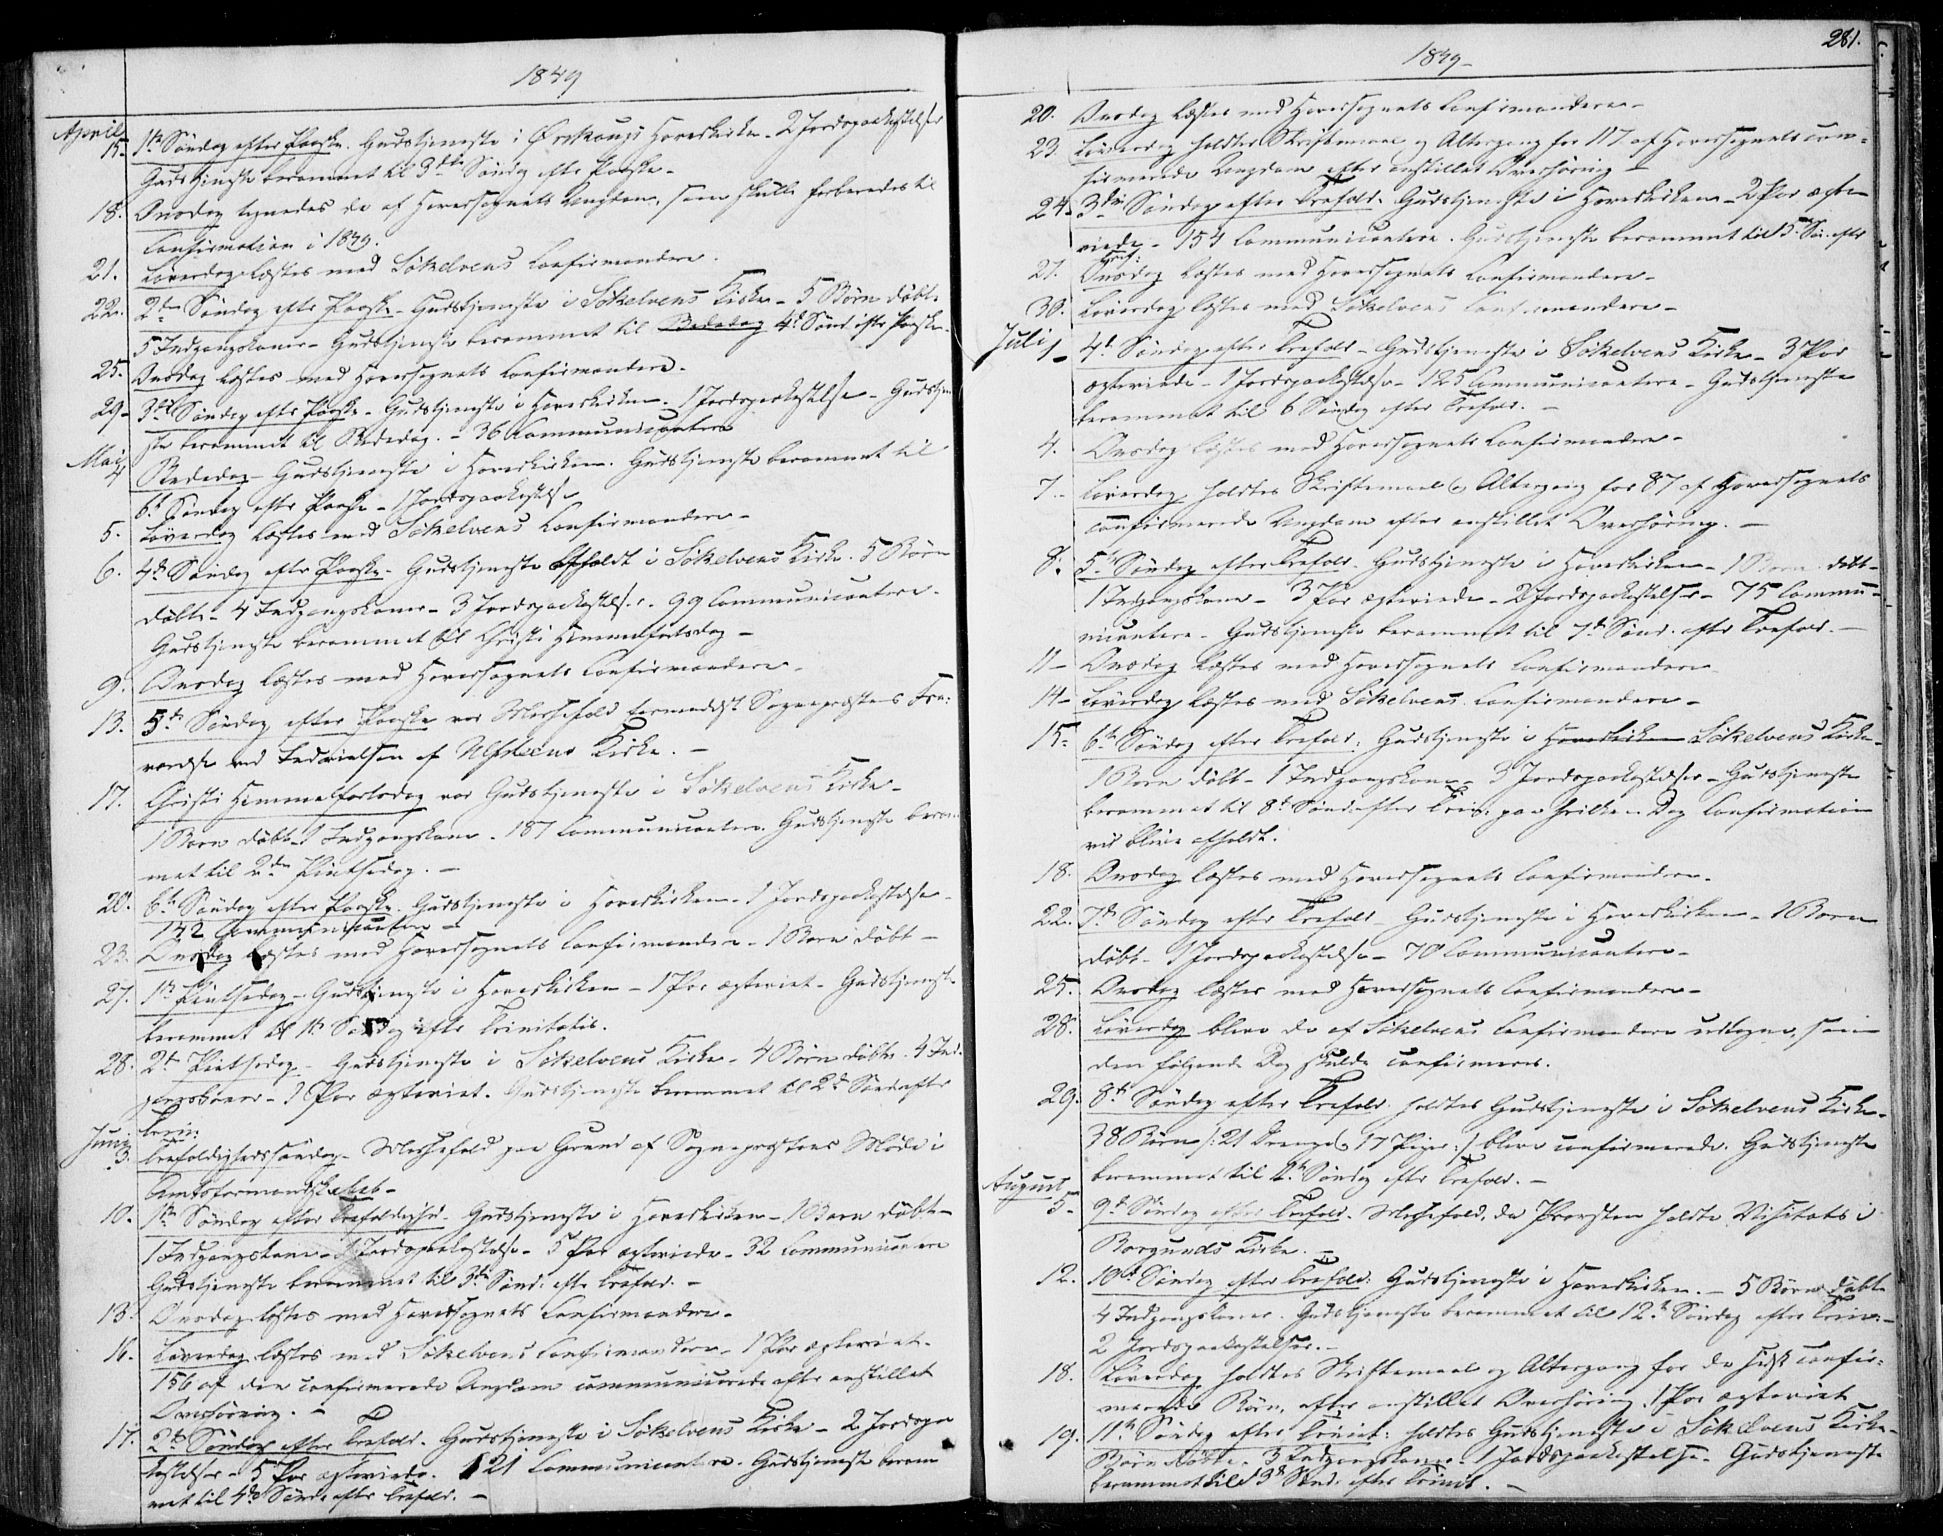 1849
April
15. 1ste Søndag efter Paaske. Gudstjeneste i Ørskougs Hovedkirke. 2 Jordspaakastelser
Gudstjeneste berammet til 3die Søndag efter Paaske.
18. Onsdag tegnedes de af Hovedsognets Ungdom, som skulle forberedes til
Confirmation i 1849.
21. Løverdag læstes med Søkelvens Confirmander.
22. 2den Søndag efter Paaske. Gudstjeneste i Søkelvens Kirke. 5 Børn døbte.
5 Indgangskoner. Gudstjeneste berammet til Bededag 4de Sønd. efter Paaske.
25. Onsdag læstes med Hovedsognets Confirmandere.
29. 3die Søndag efter Paaske. Gudstjeneste i Hovedkirken. 1 Jordspaakastelse. Gudstjene-
ste berammet til Bededag. - 36 Communicantere
Mai
4 Bededag. Gudstjeneste i Hovedkirken. Gudstjeneste berammet til
6te Søndag efter Paaske. 1 Jordspaakastelse
5. Løverdag læstes med Søkelvens Confirmandere.
6. 4de Søndag efter Paaske. Gudstjeneste afholdt i Søkelvens Kirke. 5 Børn
døbte. 4 Indgangskoner. 3 Jordspaakastelser. 99 Communicantere.
Gudstjeneste berammet til Christi Himmelfartsdag.
9. Onsdag læstes med Hovedsognets Confirmandere.
13. 5te Søndag efter Paaske var Messefald formedelst Sognepræstens Fra-
værelse ved Indvielsen af Ulfsteens Kirke.
17. Christi Himmelfartsdag var Gudstjeneste i Søkelvens Kirke.
1 Barn døbt. 1 Indgangskone. 187 Communicantere. Gudstjeneste beram-
met til 2den Pintsedag.
20. 6te Søndag efter Paaske. Gudstjeneste i Hovedkirken. 1 Jordspaakastelse.
142 Communicantere
23. Onsdag læstes med Hovedsognets Confirmandere. 1 Barn døbt
27. 1ste Pintsedag. Gudstjeneste i Hovedkirken. 1 Par ægteviet. Gudstjeneste
berammet til 1ste Søndag efter Trinitatis.
28. 2den Pintsedag. Gudstjeneste i Søkelvens Kirke. 4 Børn døbte. 4 Ind-
gangskoner. Par ægteviet. Gudstjeneste berammet til 2den Sønd. efter
Trin:
Juni
3. Trefoldighedssøndag. Messefald paa Grund af Sognepræstens Møde i
Amtsformandskabet.
10. 1ste Søndag efter Trefoldighed. Gudstjeneste i Hovedkirken. 1 Barn døbt.
1 Indgangskone. Jordspaakastelse. 5 Par ægteviede. 32 Communicantere
Gudstjeneste berammet til 3die Sønd: efter Trefold.
13. Onsdag læstes med Hovedsognets Confirmandere.
16. Løverdag læstes med Søkelvens Confirmandere. 1 Par ægteviet.
156 af den confirmerede Ungdom communicerede efter anstillet
Overhøring.
17. 2den Søndag efter Trefold. Gudstjeneste i Søkelvens Kirke. 2 Jordspaa-
kastelser. 5 Par ægteviede. 121 Communicantere. Gudstjeneste beram-
met til 4de Sønd. efter Trefold.
1849
281.
20. Onsdag læstes med Hovedsognets Confirmandere.
23. Løverdag holdtes Skriftemaal og Altergang for 117 af Hovedsognets con-
firmerede Ungdom efter anstillet Overhøring
24. 3die Søndag efter Trefold. Gudstjeneste i Hovedkirken. 2 Par ægte-
viede. 151 Communicantere. Gudstjeneste berammet til 5te Søn. efter
Tref:
27. Onsdag læstes med Hovedsognets Confirmandere.
30. Løverdag læstes med Søkelvens Confirmandere.
Juli
1. 4de Søndag efter Trefold. Gudstjeneste i Søkelvens Kirke. 3 Par
ægteviede. 1 Jordspaakastelse. 125 Communicantere. Gudstjeneste
berammet til 6 Søndag efter Trefold.
4. Onsdag læstes med Hovedsognets Confirmandere.
7. Løverdag holdtes Skriftemaal og Altergang for 87 af Hovedsognets
confirmerede Ungdom efter anstillet Overhøring.
8. 5te Søndag efter Trefold. Gudstjeneste i Hovedkirken. 1 Barn døbt.
1 Indgangskone. 3 Par ægteviede. 2 Jordspaakastelser. 75 Commu-
nicantere. Gudstjeneste berammet til 7de Sønd. efter Trefold.
11. Onsdag læstes med Hovedsognets Confirmandere
14. Løverdag læstes med Søkelvens Confirmandere.
15. 6te Søndag efter Trefold: Gudstjeneste i Hovedkirken Søkelvens Kirke.
1 Barn døbt. 1 Indgangskone. 3 Jordspaakastelser. Gudstjeneste
berammet til 8de Sønd. efter Trin: paa hvilken Dag Confirmation
vil blive afholdt.
18. Onsdag læstes med Hovedsognets Confirmandere.
22. 7de Søndag efter Trefold. Gudstjeneste i Hovedkirken. 1 Barn
døbt. 1 Jordspaakastelse. 70 Communicantere.
25. Onsdag læstes med Hovedsognets Confirmandere.
28. Løverdag bleve de af Søkelvens Confirmandere udtagne, som
den følgende Dag skulde confirmeres.
29. 8de Søndag efter Trefold. holdtes Gudstjeneste i Søkelvens Kirke.
38 Børn /: 21 Drenge og 17 Piger :/ bleve confirmerede. Gudstjeneste
berammet til Søndag efter Trefold.
August
5. 9de Søndag efter Trefold. Messefald, da Provsten holdte Visitats i
Borgunds Kirke.
12. 10de Søndag efter Trefold: Gudstjeneste i Hovedkirken. 5 Børn døbte
4 Indgangskoner. Gudstjeneste berammet til 12te Søndag efter Trin.
2 Jordspaakastelser.
18. Løverdag holdtes Skriftemaal og Altergang for de sidst confir-
merede Børn, efter anstillet Overhøring. 1 Par ægteviet
19. 11te Søndag efter Trinit: holdtes Gudstjeneste i Søkelvens Kirke.
Børn døbte. 3 Indgangskoner. 1 Jordspaakastelse. Gudstjeneste
berammet til 13de Sønd: efter Trinit.